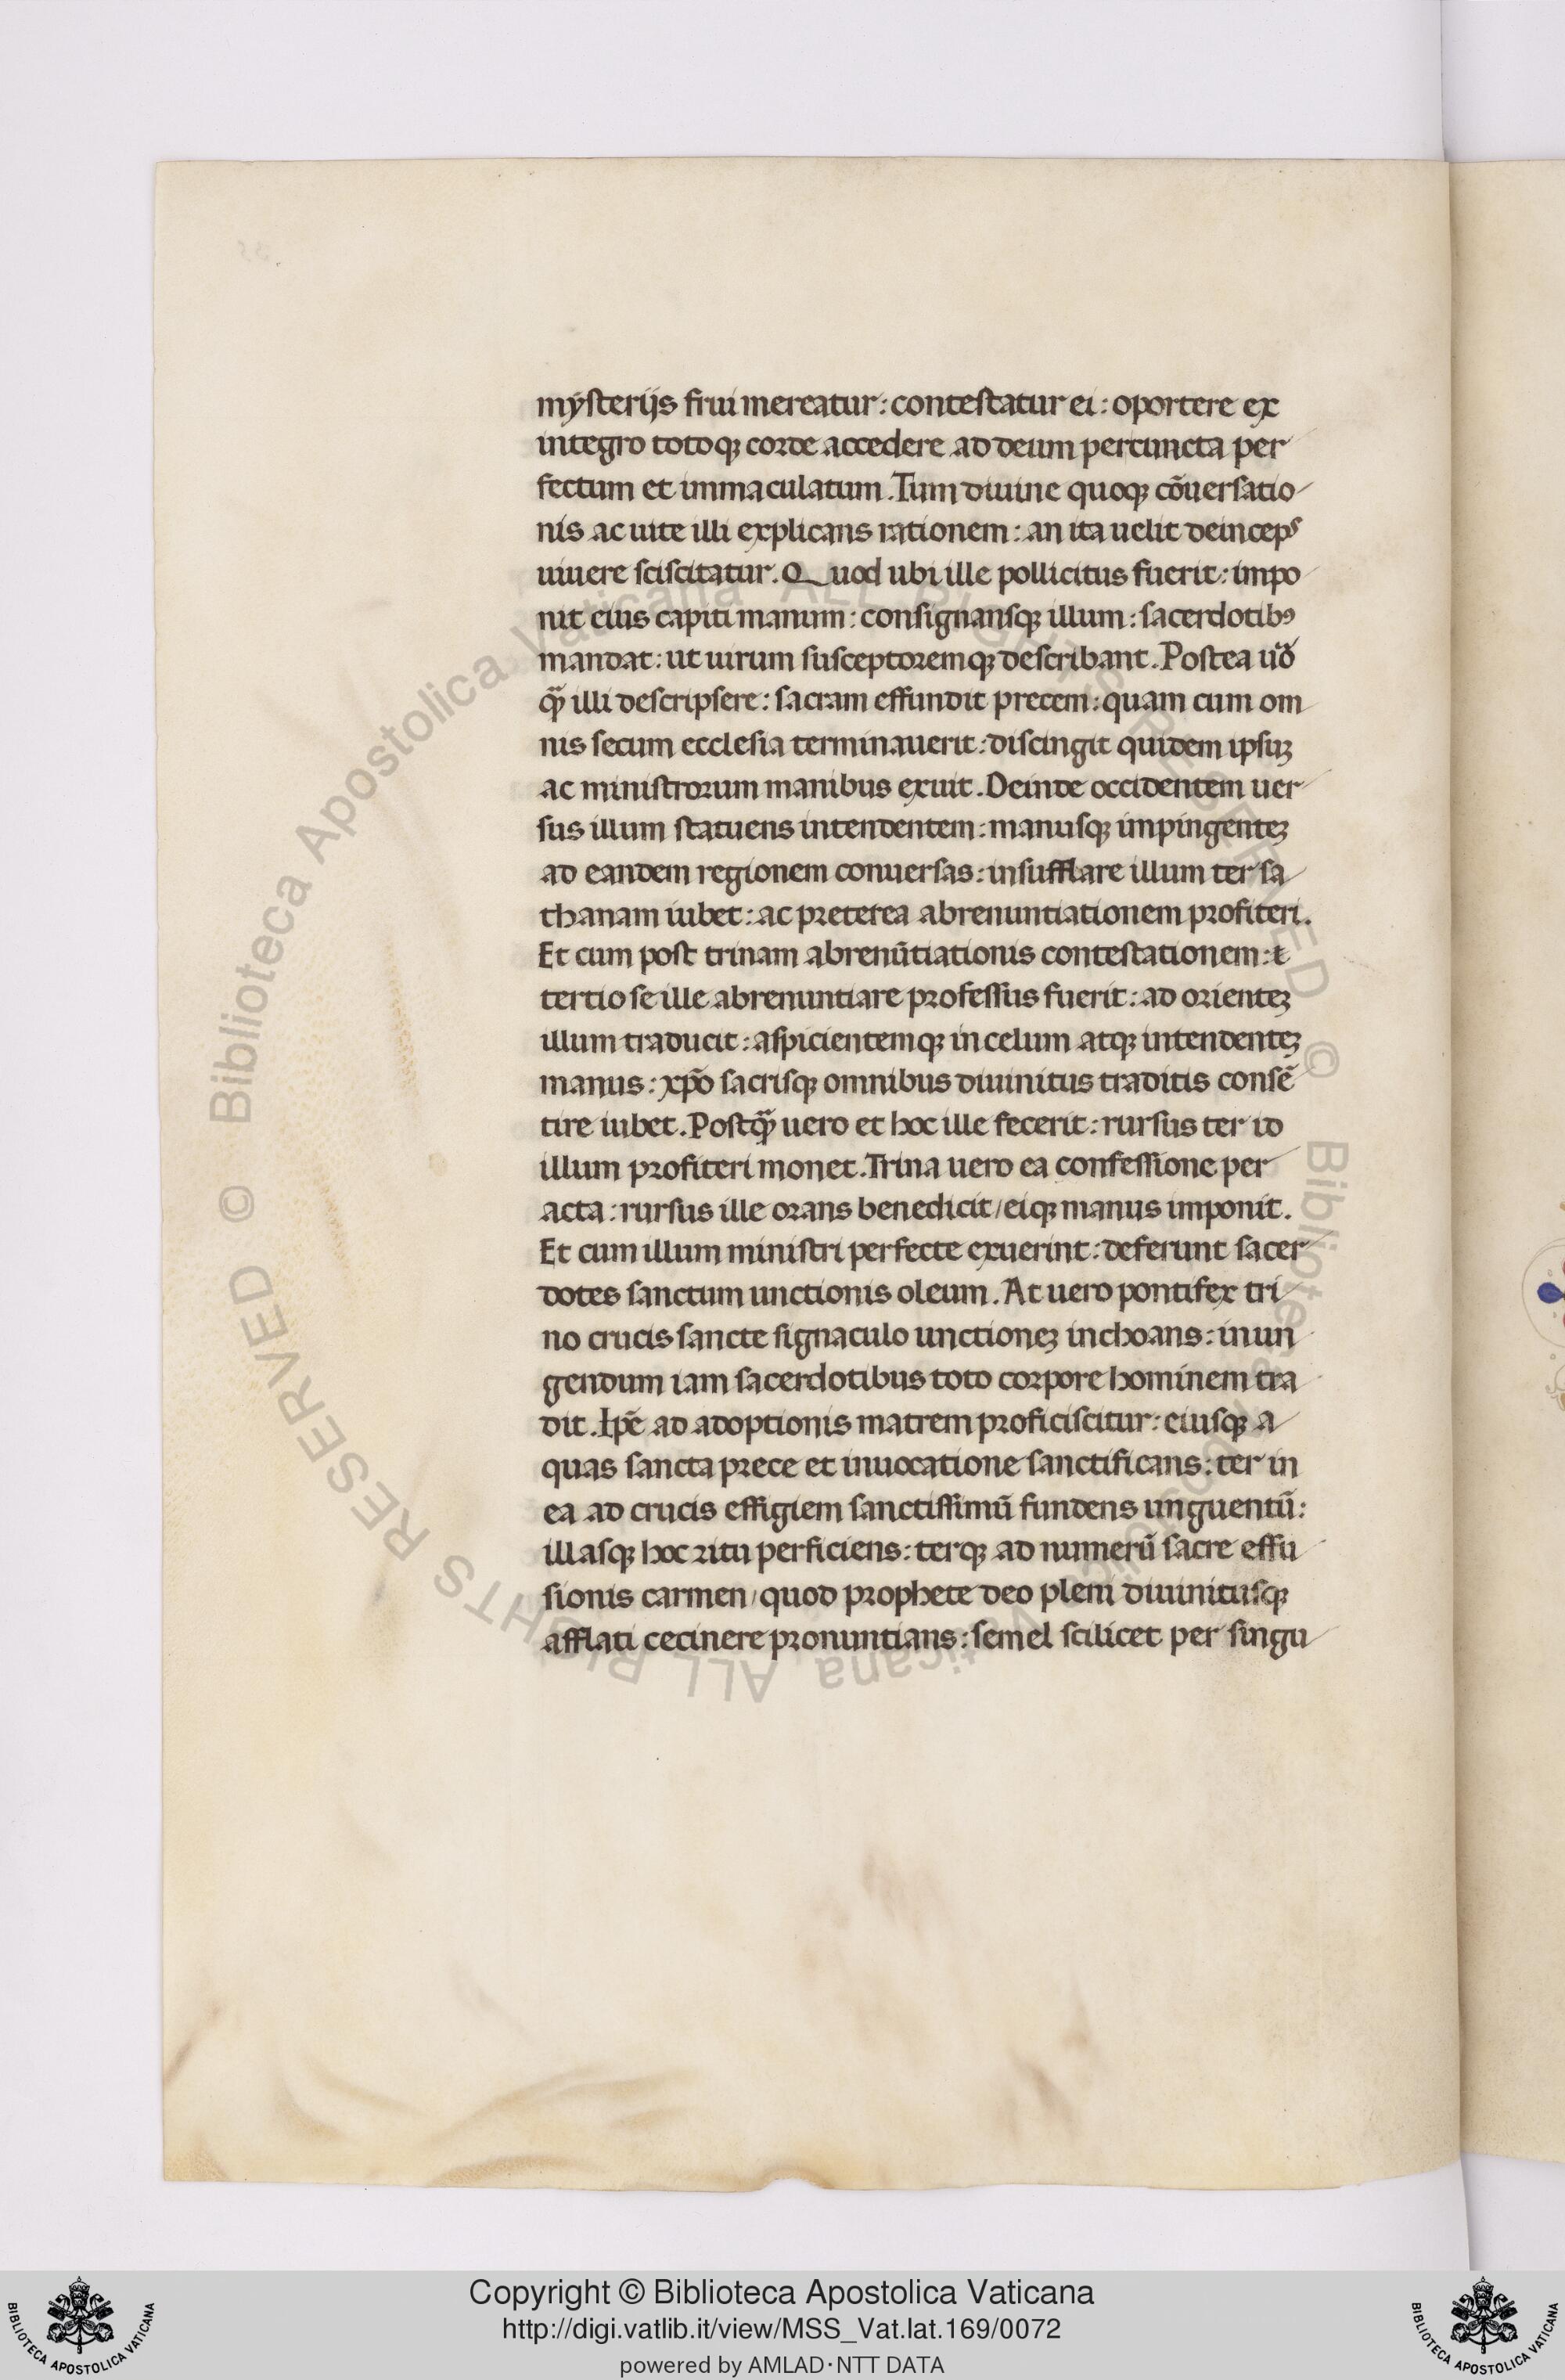 mysterijs frui mereatur: contestatur ei: oportere ex
integro totoqꝫ corde accedere ad deum per cuncta per
fectum et immaculatum. Tum diuine quoqꝫ cōuersatio
nis ac uite illi explicans rationem: an ita uelit deinceps
uiuere sciscitatur. Quod ubi ille pollicitus fuerit: impo
nit eius capiti manum: consignansqꝫ illum: sacerdotibꝰ
mandat: ut uirum susceptoremqꝫ describant. Postea
qꝫ̄ illi descripsere: sacram effundit precem: quam cum om
nis secum ecclesia terminauerit: discingit quidem ipsuꝫ
ac ministrorum manibus exuit. Deinde occidentem uer
sus illum statuens intendentem: manusqꝫ impingenteꝫ
ad eandem regionem conuersas: insufflare illum ter sa
thanam iubet: ac preterea abrenuntiationem profiteri.
Et cum post trinam abrenūtiationis contestationem: ⁊
tertio se ille abrenuntiare professus fuerit: ad orienteꝫ
illum traducit: aspicientemqꝫ in celum atqꝫ intendenteꝫ
manus: xp̄o sacrisqꝫ omnibus diuinitus traditis consē
tire iubet. Postqꝫ̄ uero et hoc ille fecerit: rursus ter id
illum profiteri monet. Trina uero ea confessione per
acta: rursus ille orans benedicit/ eiqꝫ manus imponit.
Et cum illum ministri perfecte exuerint: deferunt sacer
dotes sanctum unctionis oleum. At uero pontifex tri
no crucis sancte signaculo unctioneꝫ inchoans: inun
gendum iam sacerdotibus toto corpore hominem tra
dit. Ip̄e ad adoptionis matrem proficiscitur: eiusqꝫ a
quas sancta prece et inuocatione sanctificans: ter in
ea ad crucis effigiem sanctissimū fundens unguentū:
illasqꝫ hoc ritu perficiens: terqꝫ ad numerū sacre effu
sionis carmen/ quod prophete deo pleni diuinitusqꝫ
afflati cecinere pronuntians: semel scilicet per singu
© Biblioteca Apostolica Vaticana ALL RIGHTS RESERVED
© Biblioteca Apostolica Vaticana ALL RIGHTS RESERVED
Copyright © Biblioteca Apostolica Vaticana
http://digi.vatlib.it/view/MSS_Vat.lat.169/0072
powered by AMLAD·NTT DATA
BIBLIOTECA APOSTOLICA VATICANA
BIBLIOTECA APOSTOLICA VATICANA